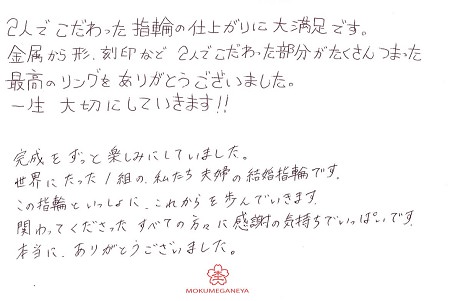 2人でこだわった指輪の仕上がりに大満足です。
金属から形、刻印など 2人でこだわった部分がたくさんつまった
最高のリングをありがとうございました。
一生 大切にしていきます!!
完成をずっと楽しみにしていました。
世界にたった1組の、私たち夫婦の結婚指輪です。
この指輪といっしょに、これからを歩んでいきます。
関わってくださったすべての方々に感謝の気持ちでいっぱいです。
本当に、ありがとうございました。
MOKUMEGANEYA